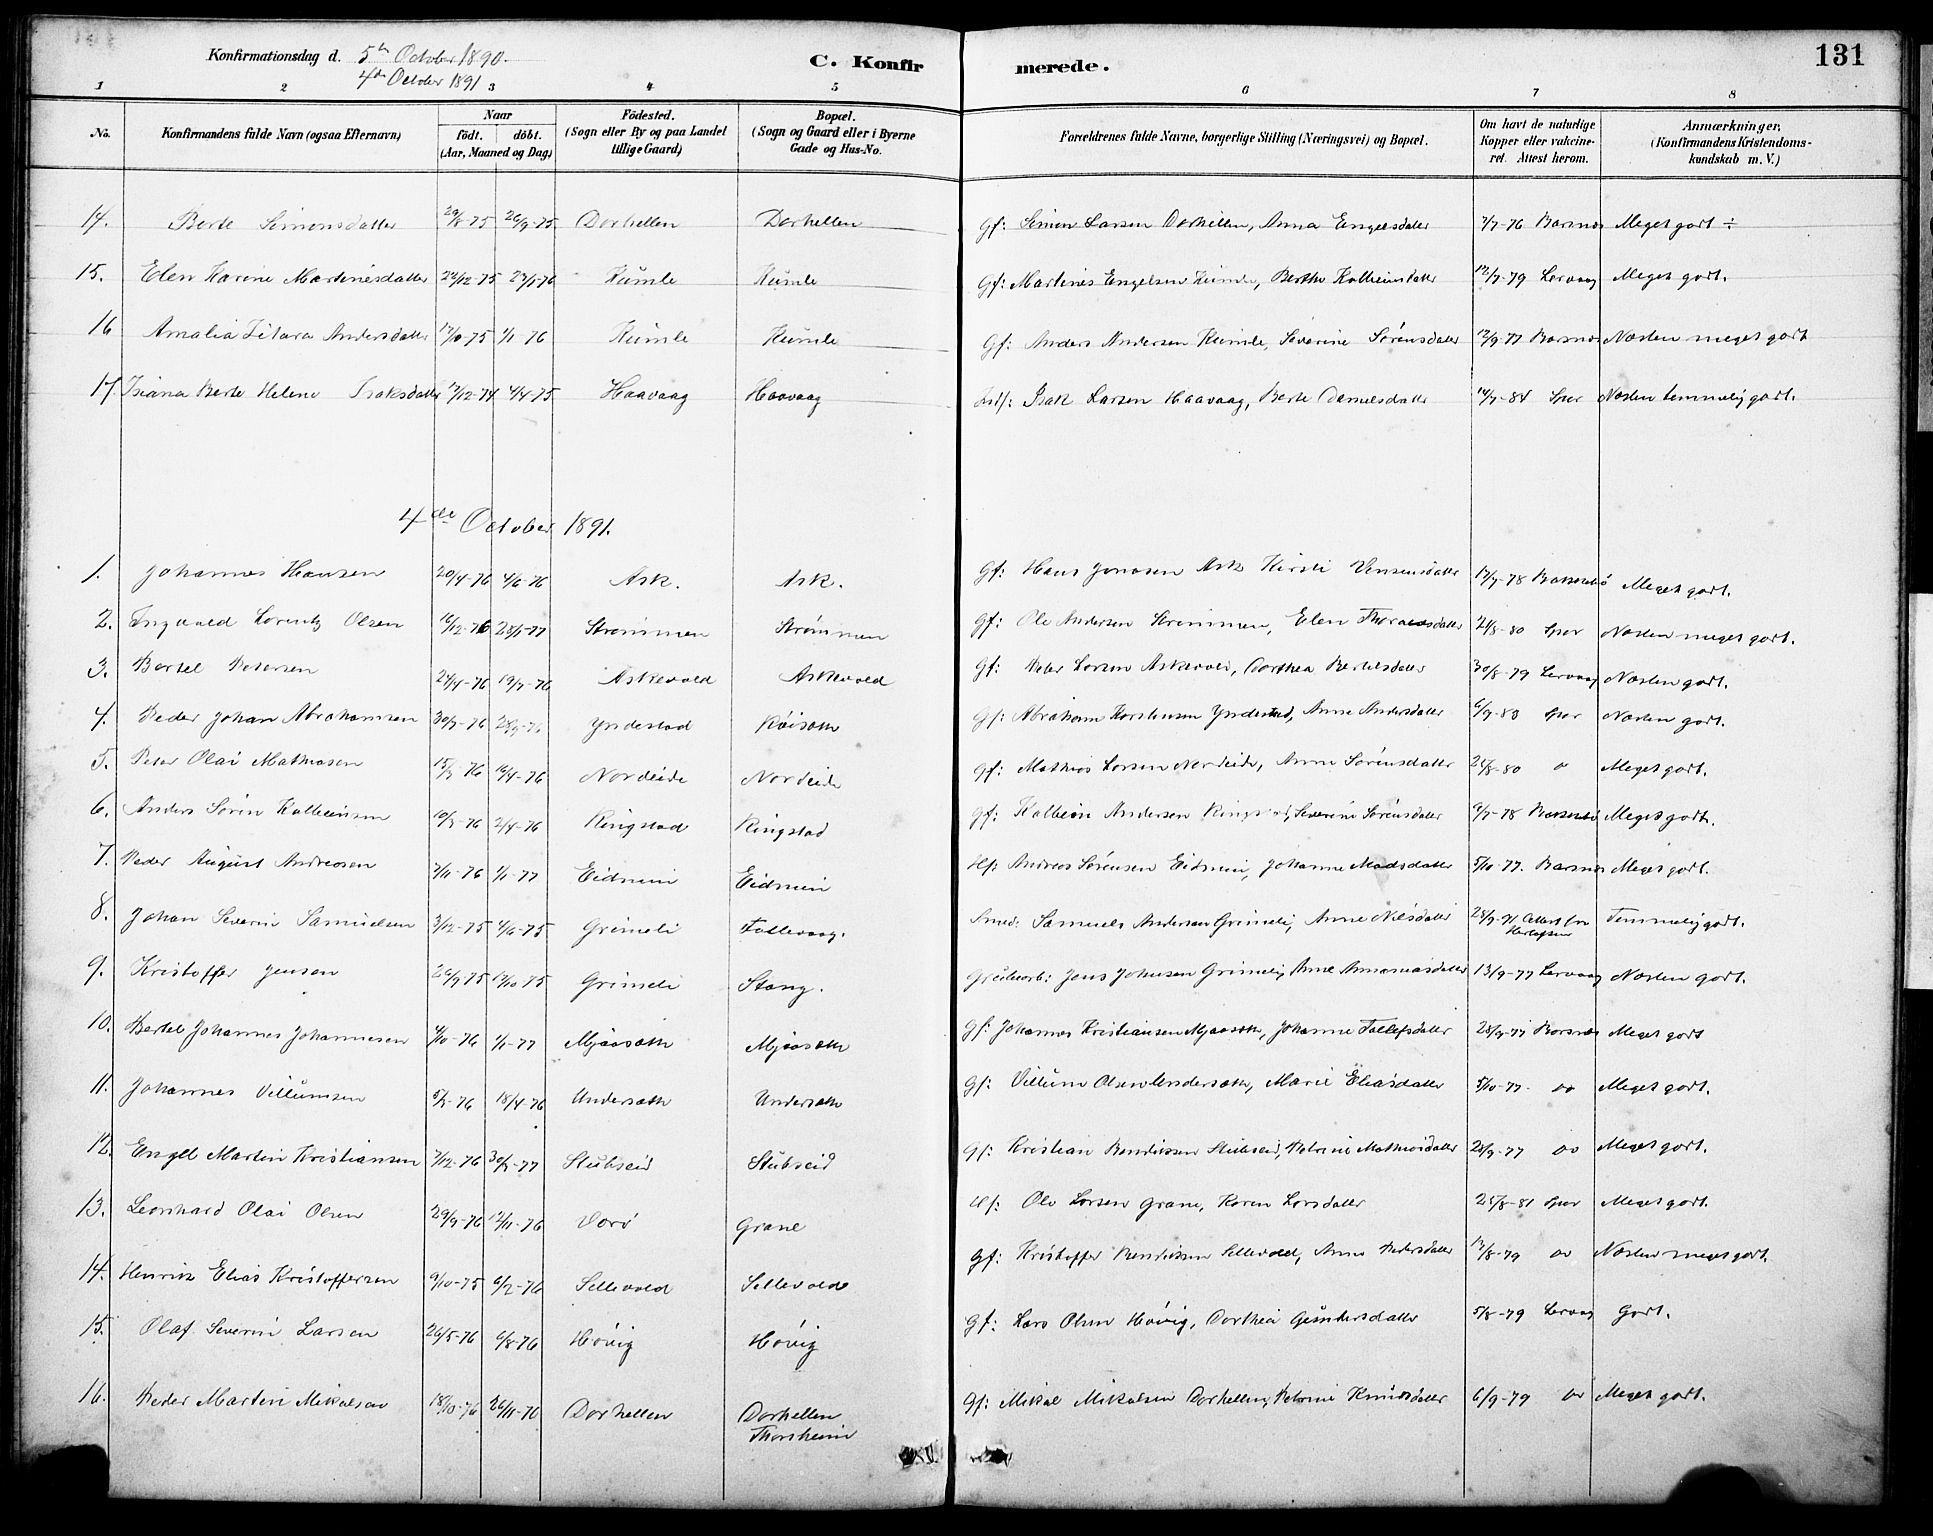 Konfirmationsdag d. 5te October 1890.
4de October 1891
C. Konfirmerede.
131
1 2 3 4 5 6 7 8
No. Konfirmandens fulde Navn (ogsaa Efternavn) Naar födt. döbt. (Aar, Maaned og Dag) Födested. (Sogn eller By og paa Landet tillige Gaard) Bopæl. (Sogn og Gaard eller i Byerne Gade og Hus-No. Forældrenes fulde Navne, borgerlige Stilling (Næringsvei) og Bopæl. Om havt de naturlige Kopper eller vakcineret. Attest herom. Anmærkninger, (Konfirmandens Kristendomskundskab m. V.)
14. Berte Simonsdatter 29/8-75 26/9-75 Dorhellen Dorhellen Gf: Simon Larsen Dorhellen, Anna Engelsdatter 7/7-76 Barsnes Meget godt ÷
15. Elen Karine Martinesdatter 22/12-75 Humle Humle Gf: Martines Engelsen Humle, Berthe Kolbeinsdatter 12/7-79 Lervaag Meget godt.
16 Amalia Andersdatter 17/10-75 1/1-76 Humle Humle Gf: Anders Andersen Humle, Severine Sörensdatter 12/9-77 Barsnes Næsten meget godt
17. Berte Helene Isaksdatter 17/12-74 4/4-75 Haavaag Haavaag Isak Larsen Haavaag, Berte Danielsdatter 14/7-84 Spor Næsten temmelig godt.
4de October 1891.
1. Johannes Hansen 20/4-76 4/6-76 Ask. Ask. Gf: Hans Jonasen Ask Kirsti 17/7-78 Meget godt.
2. Ingvald Lorentz Olsen 16/12-76 28/1-77 Strømmen Strømmen Gf: Ole Andersen Strømmen, Elen 24/8-80 Spor Næsten meget godt.
3. Bertel Petersen 24/4-76 19/7-76 Askevold Askevold Gf: Peter Larsen Askevold, Dorthea Bertelsdatter 30/8-79 Lervaag Næsten godt.
4. Peder Johan Abrahamsen 30/7-76 Yndestad Röisæth Gf: Abraham Yndestad, Anne Andersdatter 6/9-80 Spor Næsten godt.
5. Peter Olai Mathiasen 15/3-76 16/4-76 Nordeide Nordeide Gf: Mathias Larsen Nordeide, Anne Sörensdatter 24/8-80 o Meget godt.
6. Anders Sörin Kolbeinsen 10/3-76 2/4-76 Ringstad Ringstad Gf: Kolbein Andersen Ringstad, Severine Sörensdatter 6/7-78 Meget godt.
7. Peder August Andreasen 7/11-76 1/1-77 Eidmin Eidmin Hf: Andreas Sörensen Eidmin, Johanne Madsdatter 5/10-77. Barsnes Meget godt.
8. Johan Severin Samuelsen 3/12-75 Grimeli Follevaag. Smed. Samuels Andersen Grimeli, Anne Nilsdatter Attest fra Temmelig godt.
9. Kristoffer Jensen 26/9-75 17/10-75 Grimeli Stang. Jens Johnsen Grimeli, Anne Annaniasdatter 13/9-77 Lervaag Næsten godt.
10. Bertel Johannes Johannesen 4/10-76 1/1-77 Mjaasæth Mjaasæth Gf: Johannes Kristiansen Mjaasæth, Johanne Tollefsdatter 28/9-77 Barsnes Meget godt
11. Johannes Villumsen 5/3-76 18/4-76 Undersæth Undersæth Gf: Villum Olsen Undersæth, Marie Eliasdatter 5/10-77- oo Meget godt.
12. Engel Martin Kristiansen 7/12-76 Stubseid Stubseid Gf: Kristian Bendiksen Stubseid, Petrine Mathiasdatter 28/9-77 oo Meget godt.
13. Leonhard Olai Olsen 29/9-76 12/11-76 Vorö Grane Ole Larsen Grane, Karen Larsdatter 25/8-81 Spor Meget godt.
14. Henrik Elias Kristoffersen 9/10-75 6/2-76 Sellevold Sellevold Gf: Kristoffer Bendiksen Sellevold, Anne Pedersdatter 13/8-79 oo Næsten meget godt.
15. Olaf Severin Larsen 26/5-76 6/8-76 Hövig Hövig Gf: Lars Olsen Hövig, Dorthea Guntersdatter 5/8-79 Lervaag Godt.
16. Peder Martin Mikalsen 18/10-76 26/11-76 Dorhellen Dorhellen Thorsheim Gf: Mikal Mikalsen Dorhellen, Petrine Knudsdatter 6/9-79 oo Meget godt.